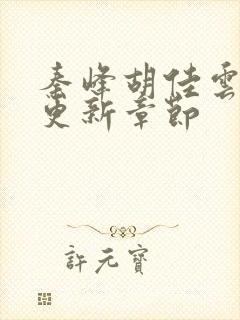 秦峰胡佳雲
更新章節
許元寶